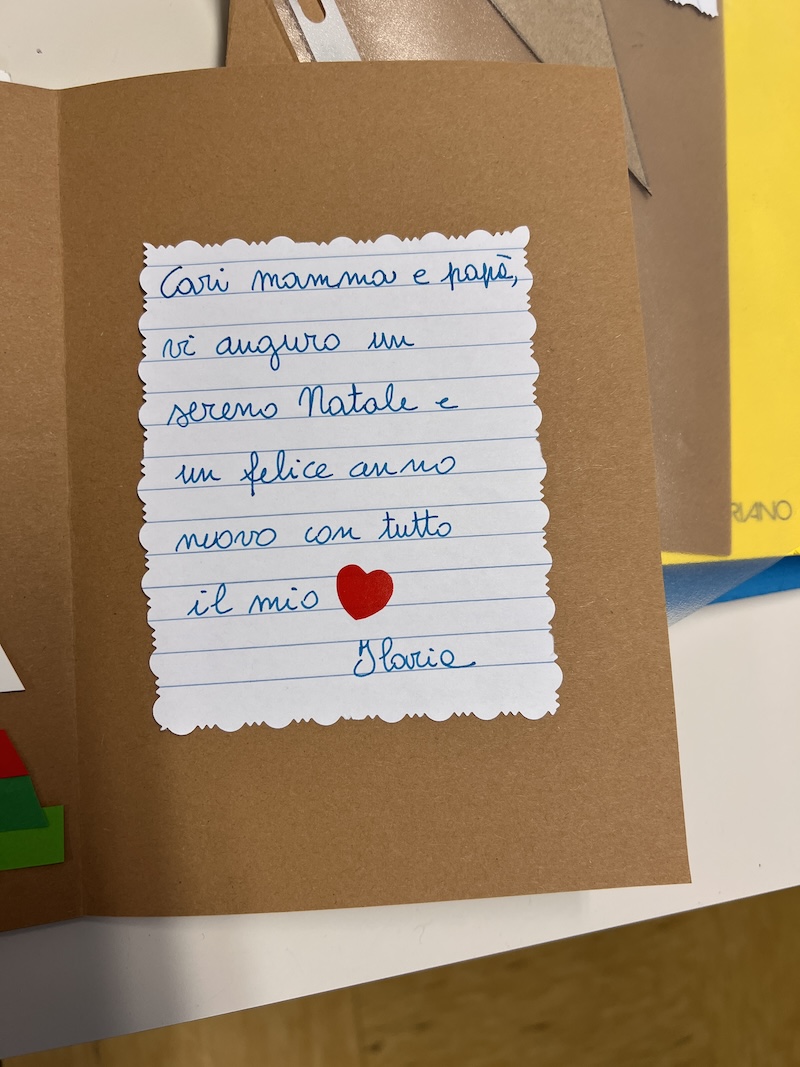 Cari mamma e papà,
vi auguro un
sereno Natale e
un felice anno
nuovo con tutto
il mio
Ilaria
RIANO